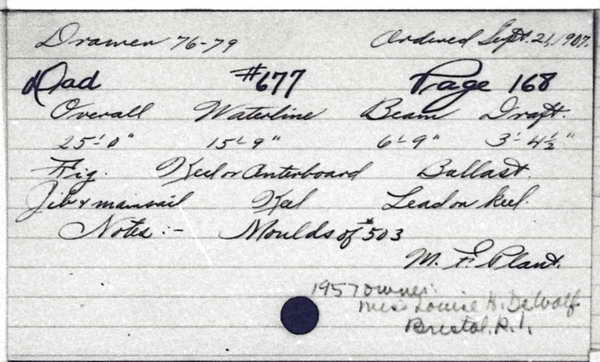 Drawer 76-79 Ordered Sept. 21, 1907.
Dad #677 Page 168
Overall Waterline Beam Draft.
25'-0" 15'-9" 6'-9" 3'-4½"
Rig. Keel or Centerboard Ballast.
Jib & mainsail Keel Lead on keel.
Notes:- Moulds of #503
M. F. Plant.
1957 owner:
Miss Louise H. DeWolf
Bristol, R.I.